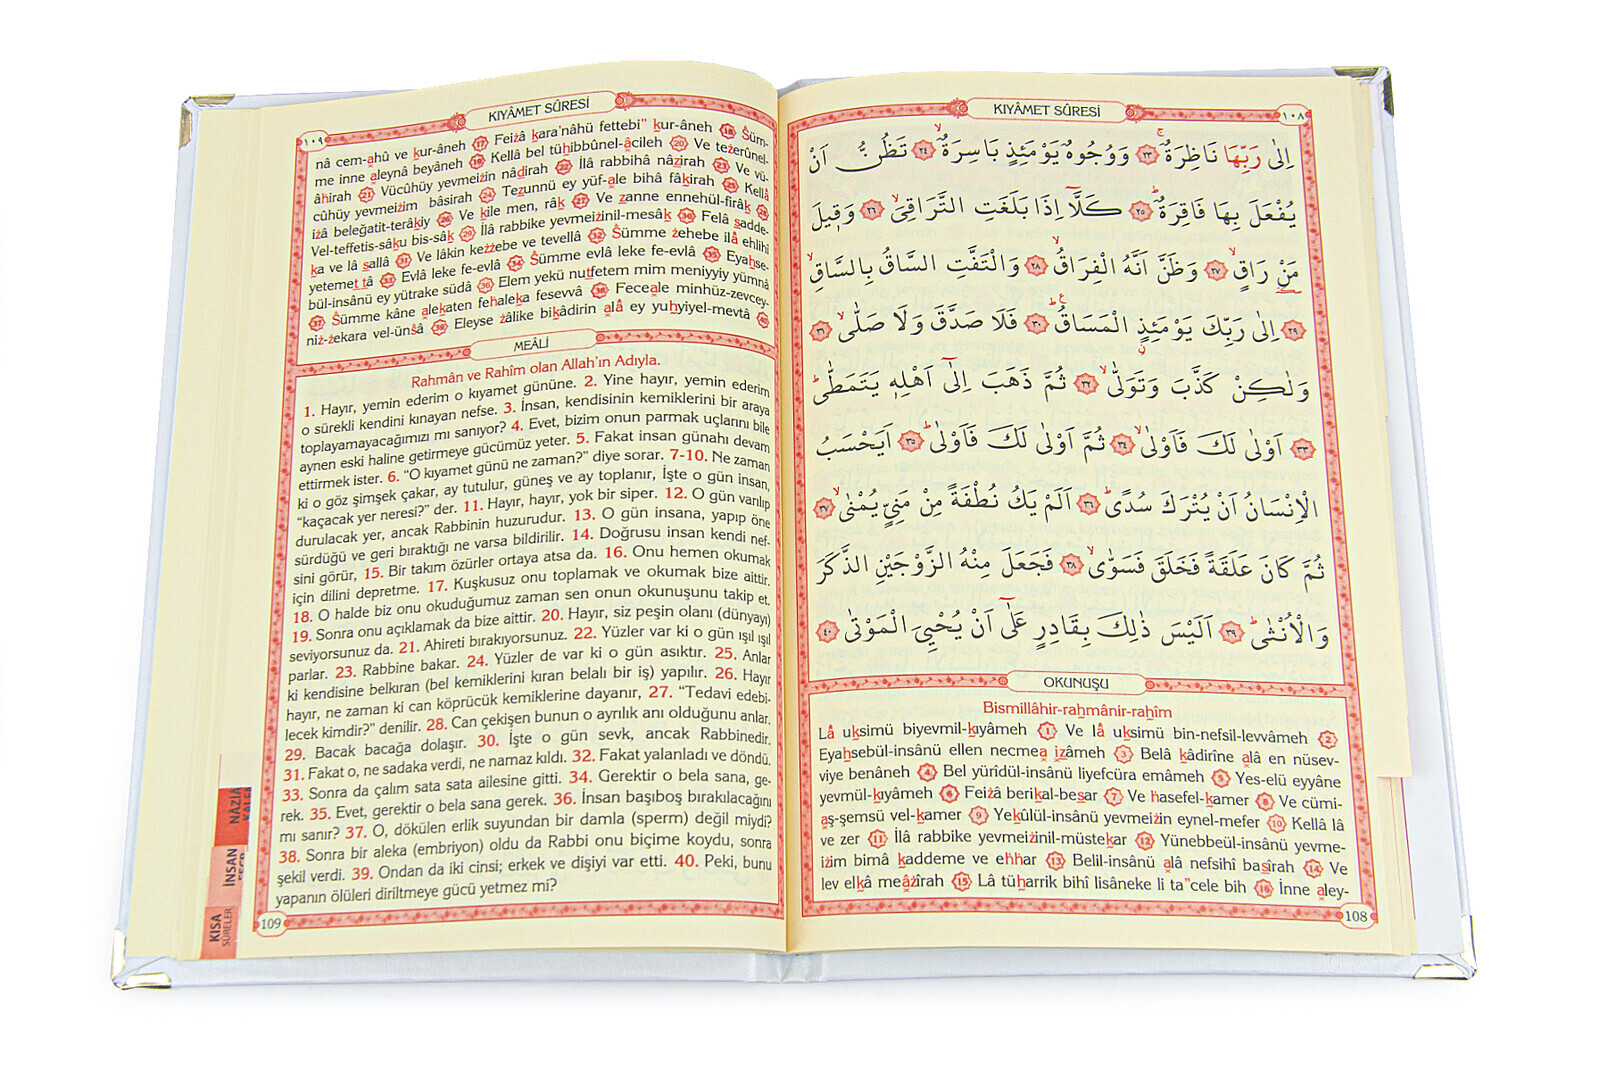 KIYÂMET SÛRESİ
١٠٨
اِلٰى رَبِّهَا نَاظِرَةٌۚ ﴿٢٣﴾ وَوُجُوهٌ يَوْمَئِذٍ بَاسِرَةٌۙ ﴿٢٤﴾ تَظُنُّ اَنْ
يُفْعَلَ بِهَا فَاقِرَةٌۜ ﴿٢٥﴾ كَلَّٓا اِذَا بَلَغَتِ التَّرَاقِيَۙ ﴿٢٦﴾ وَق۪يلَ
مَنْ رَاقٍۙ ﴿٢٧﴾ وَظَنَّ اَنَّهُ الْفِرَاقُۙ ﴿٢٨﴾ وَالْتَفَّتِ السَّاقُ بِالسَّاقِۙ
﴿٢٩﴾ اِلٰى رَبِّكَ يَوْمَئِذٍ الْمَسَاقُۜ ﴿٣٠﴾ فَلَا صَدَّقَ وَلَا صَلّٰىۙ ﴿٣١﴾
وَلٰكِنْ كَذَّبَ وَتَوَلّٰىۙ ﴿٣٢﴾ ثُمَّ ذَهَبَ اِلٰٓى اَهْلِه۪ يَتَمَطّٰىۜ
﴿٣٣﴾ اَوْلٰى لَكَ فَاَوْلٰىۙ ﴿٣٤﴾ ثُمَّ اَوْلٰى لَكَ فَاَوْلٰىۜ ﴿٣٥﴾ اَيَحْسَبُ
الْاِنْسَانُ اَنْ يُتْرَكَ سُدًىۜ ﴿٣٦﴾ اَلَمْ يَكُ نُطْفَةً مِنْ مَنِيٍّ يُمْنٰىۙ ﴿٣٧﴾
ثُمَّ كَانَ عَلَقَةً فَخَلَقَ فَسَوّٰىۙ ﴿٣٨﴾ فَجَعَلَ مِنْهُ الزَّوْجَيْنِ الذَّكَرَ
وَالْاُنْثٰىۜ ﴿٣٩﴾ اَلَيْسَ ذٰلِكَ بِقَادِرٍ عَلٰٓى اَنْ يُحْيِيَ الْمَوْتٰى ﴿٤٠﴾
OKUNUŞU
Bismillâhir-rahmânir-rahîm
Lâ uksimü biyevmil-kıyâmeh 1 Ve lâ uksimü bin-nefsil-levvâmeh 2
Eyahsebül-insânü ellen necmea ızâmeh 3 Belâ kâdirîne alâ en nüsev-
viye benâneh 4 Bel yürîdül-insânü liyefcüra emâmeh 5 Yes-elü eyyâne
yevmül-kıyâmeh 6 Feiżâ berikal-besar 7 Ve hasefel-kamer 8 Ve cümi-
aş-şemsü vel-kamer 9 Yekûlül-insânü yevmeiżin eynel-mefer 10 Kellâ lâ
ve zer 11 İlâ rabbike yevmeiżinil-müstekar 12 Yünebbeül-insânü yevme-
iżim bimâ kaddeme ve ehhar 13 Belil-insânü alâ nefsihî basîrah 14 Ve
lev elkâ meâżîrah 15 Lâ tüharrik bihî lisâneke li ta"cele bih 16 İnne aley-
108
KIYÂMET SÛRESİ
١٠٩
nâ cem-ahû ve kur-âneh 17 Feiżâ kara'nâhü fettebi" kur-âneh 18 Šüm-
me inne aleynâ beyâneh 19 Kellâ bel tühıbbûnel-âcileh 20 Ve teżerûnel-
âhirah 21 Vücûhüy yevmeiżin nâdirah 22 İlâ rabbihâ nâzirah 23 Ve vü-
cûhüy yevmeiżim bâsirah 24 Tezunnü ey yüf-ale bihâ fâkirah 25 Kellâ
iżâ beleğatit-terâkıy 26 Ve kîle men, râk 27 Ve zanne ennehül-firâk 28
Vel-teffetis-sâku bis-sâk 29 İlâ rabbike yevmeiżinil-mesâk 30 Felâ sadde-
ka ve lâ sallâ 31 Ve lâkin keżżebe ve tevellâ 32 Šümme żehebe ilâ ehlihî
yetemettâ 33 Evlâ leke fe-evlâ 34 Šümme evlâ leke fe-evlâ 35 Eyahse-
bül-insânü ey yütrake südâ 36 Elem yekü nutfetem mim meniyyiy yümnâ
37 Šümme kâne alekaten fehaleka fesevvâ 38 Feceale minhüz-zevcey-
niż-żekara vel-ünšâ 39 Eleyse żâlike bikâdirin alâ ey yuhyiyel-mevtâ 40
MEÂLİ
Rahmân ve Rahîm olan Allah'ın Adıyla.
1. Hayır, yemin ederim o kıyamet gününe. 2. Yine hayır, yemin ederim
o sürekli kendini kınayan nefse. 3. İnsan, kendisinin kemiklerini bir araya
toplayamayacağımızı mı sanıyor? 4. Evet, bizim onun parmak uçlarını bile
aynen eski haline getirmeye gücümüz yeter. 5. Fakat insan günahı devam
ettirmek ister. 6. "O kıyamet günü ne zaman?" diye sorar. 7-10. Ne zaman
ki o göz şimşek çakar, ay tutulur, güneş ve ay toplanır, İşte o gün insan,
"kaçacak yer neresi?" der. 11. Hayır, hayır, yok bir siper. 12. O gün varılıp
durulacak yer, ancak Rabbinin huzurudur. 13. O gün insana, yapıp öne
sürdüğü ve geri bıraktığı ne varsa bildirilir. 14. Doğrusu insan kendi nef-
sini görür, 15. Bir takım özürler ortaya atsa da. 16. Onu hemen okumak
için dilini depretme. 17. Kuşkusuz onu toplamak ve okumak bize aittir.
18. O halde biz onu okuduğumuz zaman sen onun okunuşunu takip et.
19. Sonra onu açıklamak da bize aittir. 20. Hayır, siz peşin olanı (dünyayı)
seviyorsunuz da. 21. Ahireti bırakıyorsunuz. 22. Yüzler var ki o gün ışıl ışıl
parlar. 23. Rabbine bakar. 24. Yüzler de var ki o gün asıktır. 25. Anlar
ki kendisine belkıran (bel kemiklerini kıran belalı bir iş) yapılır. 26. Hayır
hayır, ne zaman ki can köprücük kemiklerine dayanır, 27. "Tedavi edebi-
lecek kimdir?" denilir. 28. Can çekişen bunun o ayrılık anı olduğunu anlar.
29. Bacak bacağa dolaşır. 30. İşte o gün sevk, ancak Rabbinedir.
31. Fakat o, ne sadaka verdi, ne namaz kıldı. 32. Fakat yalanladı ve döndü.
33. Sonra da çalım sata sata ailesine gitti. 34. Gerektir o bela sana, ge-
rek. 35. Evet, gerektir o bela sana gerek. 36. İnsan başıboş bırakılacağını
mı sanır? 37. O, dökülen erlik suyundan bir damla (sperm) değil miydi?
38. Sonra bir aleka (embriyon) oldu da Rabbi onu biçime koydu, sonra
şekil verdi. 39. Ondan da iki cinsi; erkek ve dişiyi var etti. 40. Peki, bunu
yapanın ölüleri diriltmeye gücü yetmez mi?
109
İNSAN
KISA
SÛRELER